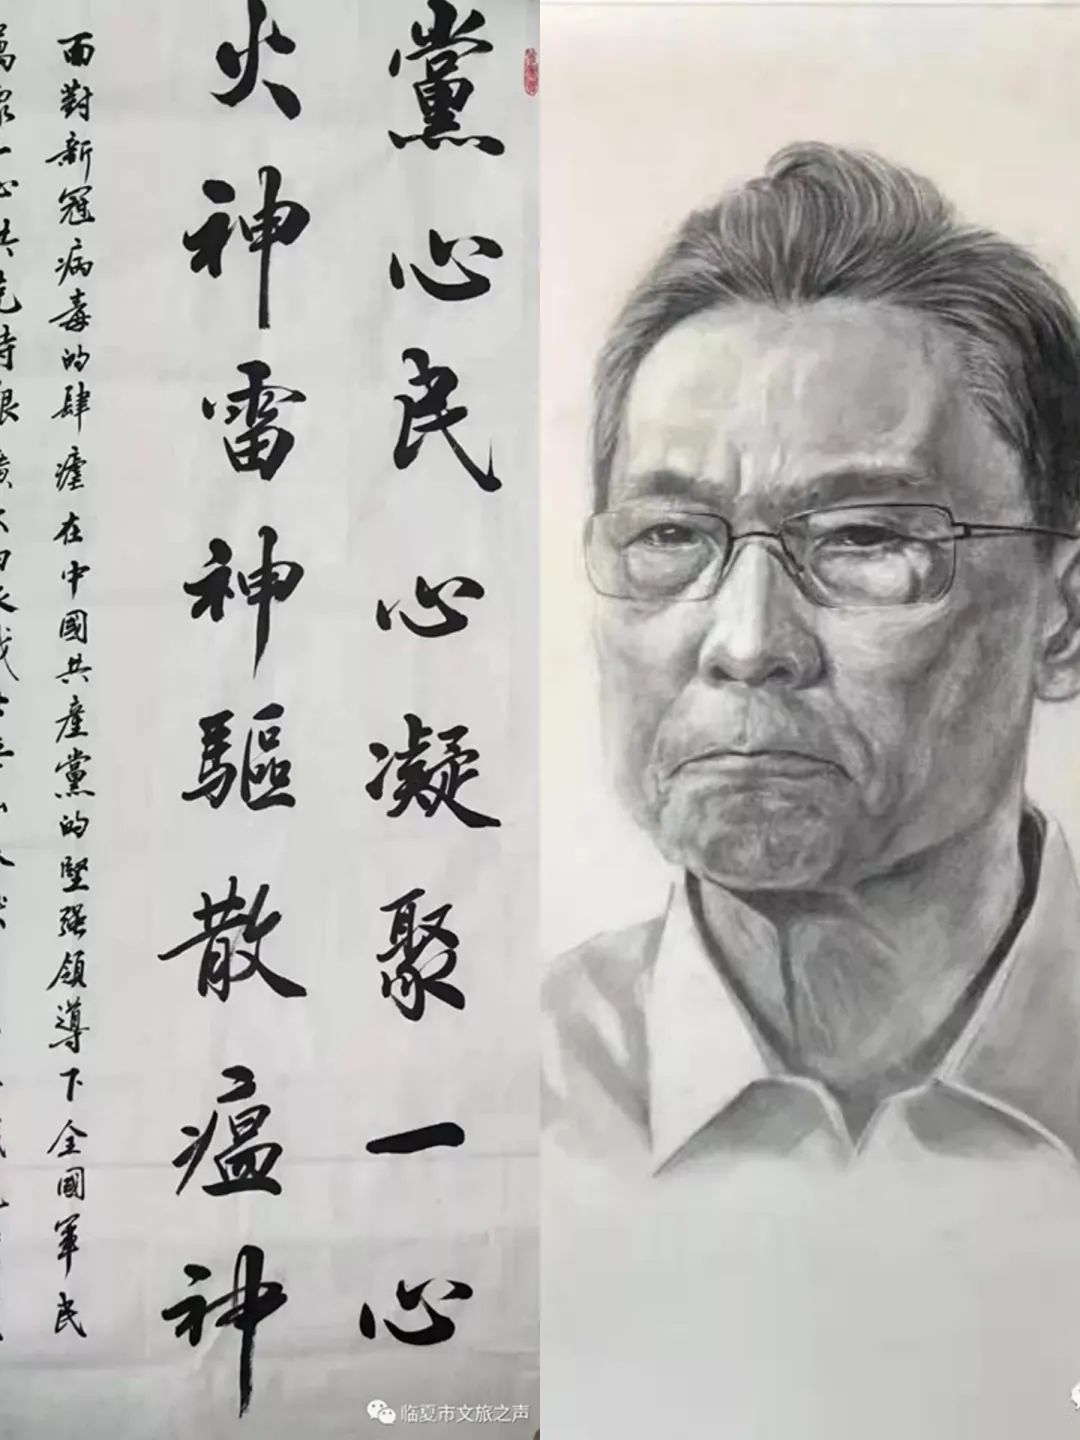 黨心民心凝聚一心
火神雷神驅散瘟神
面對新冠病毒的肆虐在中國共產黨的堅强領導下全國軍民
萬眾一心共克時艱
临夏市文旅之声